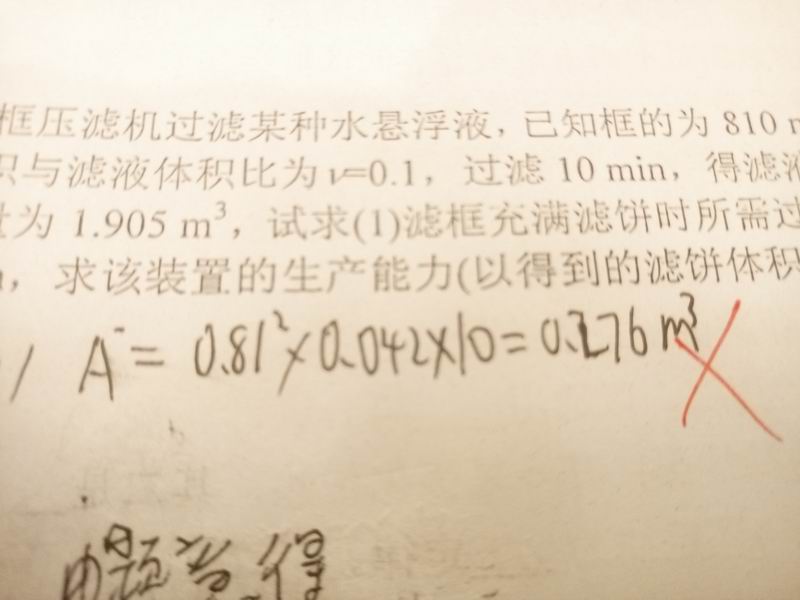 框压滤机过滤某种水悬浮液，已知框的为 810
与滤液体积比为 v=0.1，过滤 10 min，得滤液
为 1.905 m³，试求(1)滤框充满滤饼时所需过
，求该装置的生产能力(以得到的滤饼体积
A = 0.81²×0.042×10=0.276 m³
由题意得